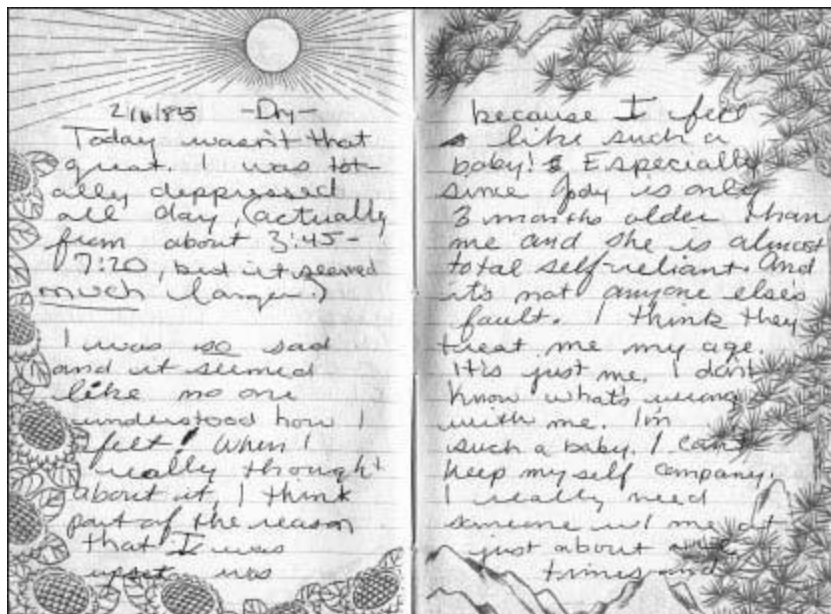 2/16/85 -Dry-
Today wasn't that
great. I was tot-
ally deppressed
all day, (actually
from about 3:45-
7:20, but it seemed
much longer.)
I was so sad
and it seemed
like no one
understood how I
felt! When I
really thought
about it, I think
part of the reason
that I was
upset was
because I feel
like such a
baby! Especially
since Jody is only
3 months older than
me and she is almost
total self-reliant. And
it's not anyone else's
fault. I think they
treat me my age.
It's just me. I don't
know what's wrong
with me. I'm
such a baby. I can't
keep my self company.
I really need
someone w/ me at
just about all
times and